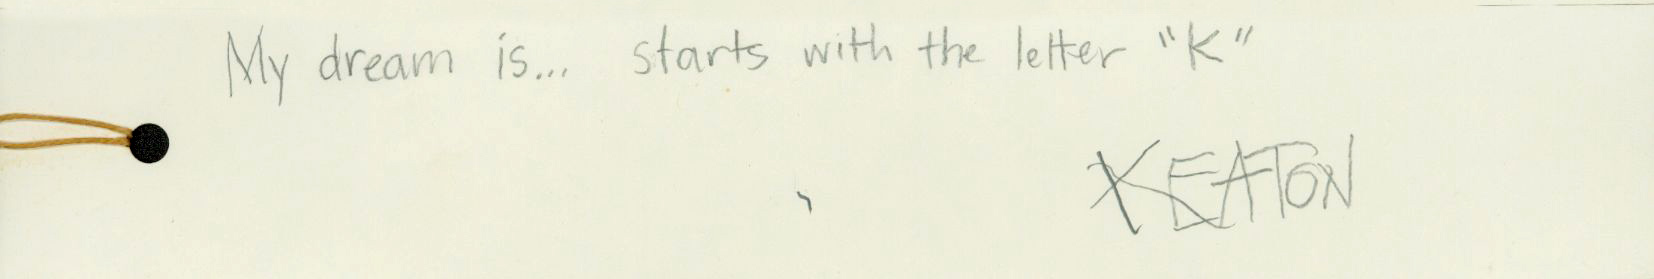 My dream is... starts with the letter "K"
KEATON